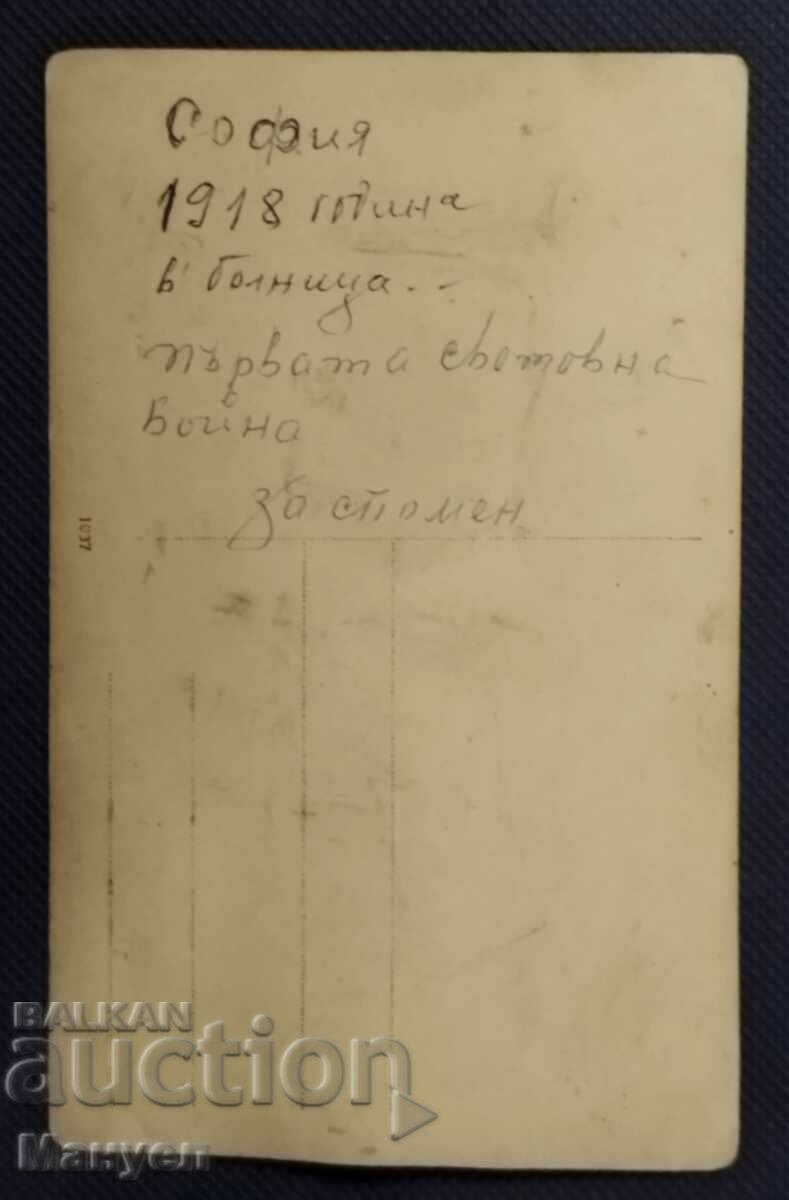 София
1918 година
в болница..
първата световна
война
за спомен
1037
BALKAN
auction
Мануел